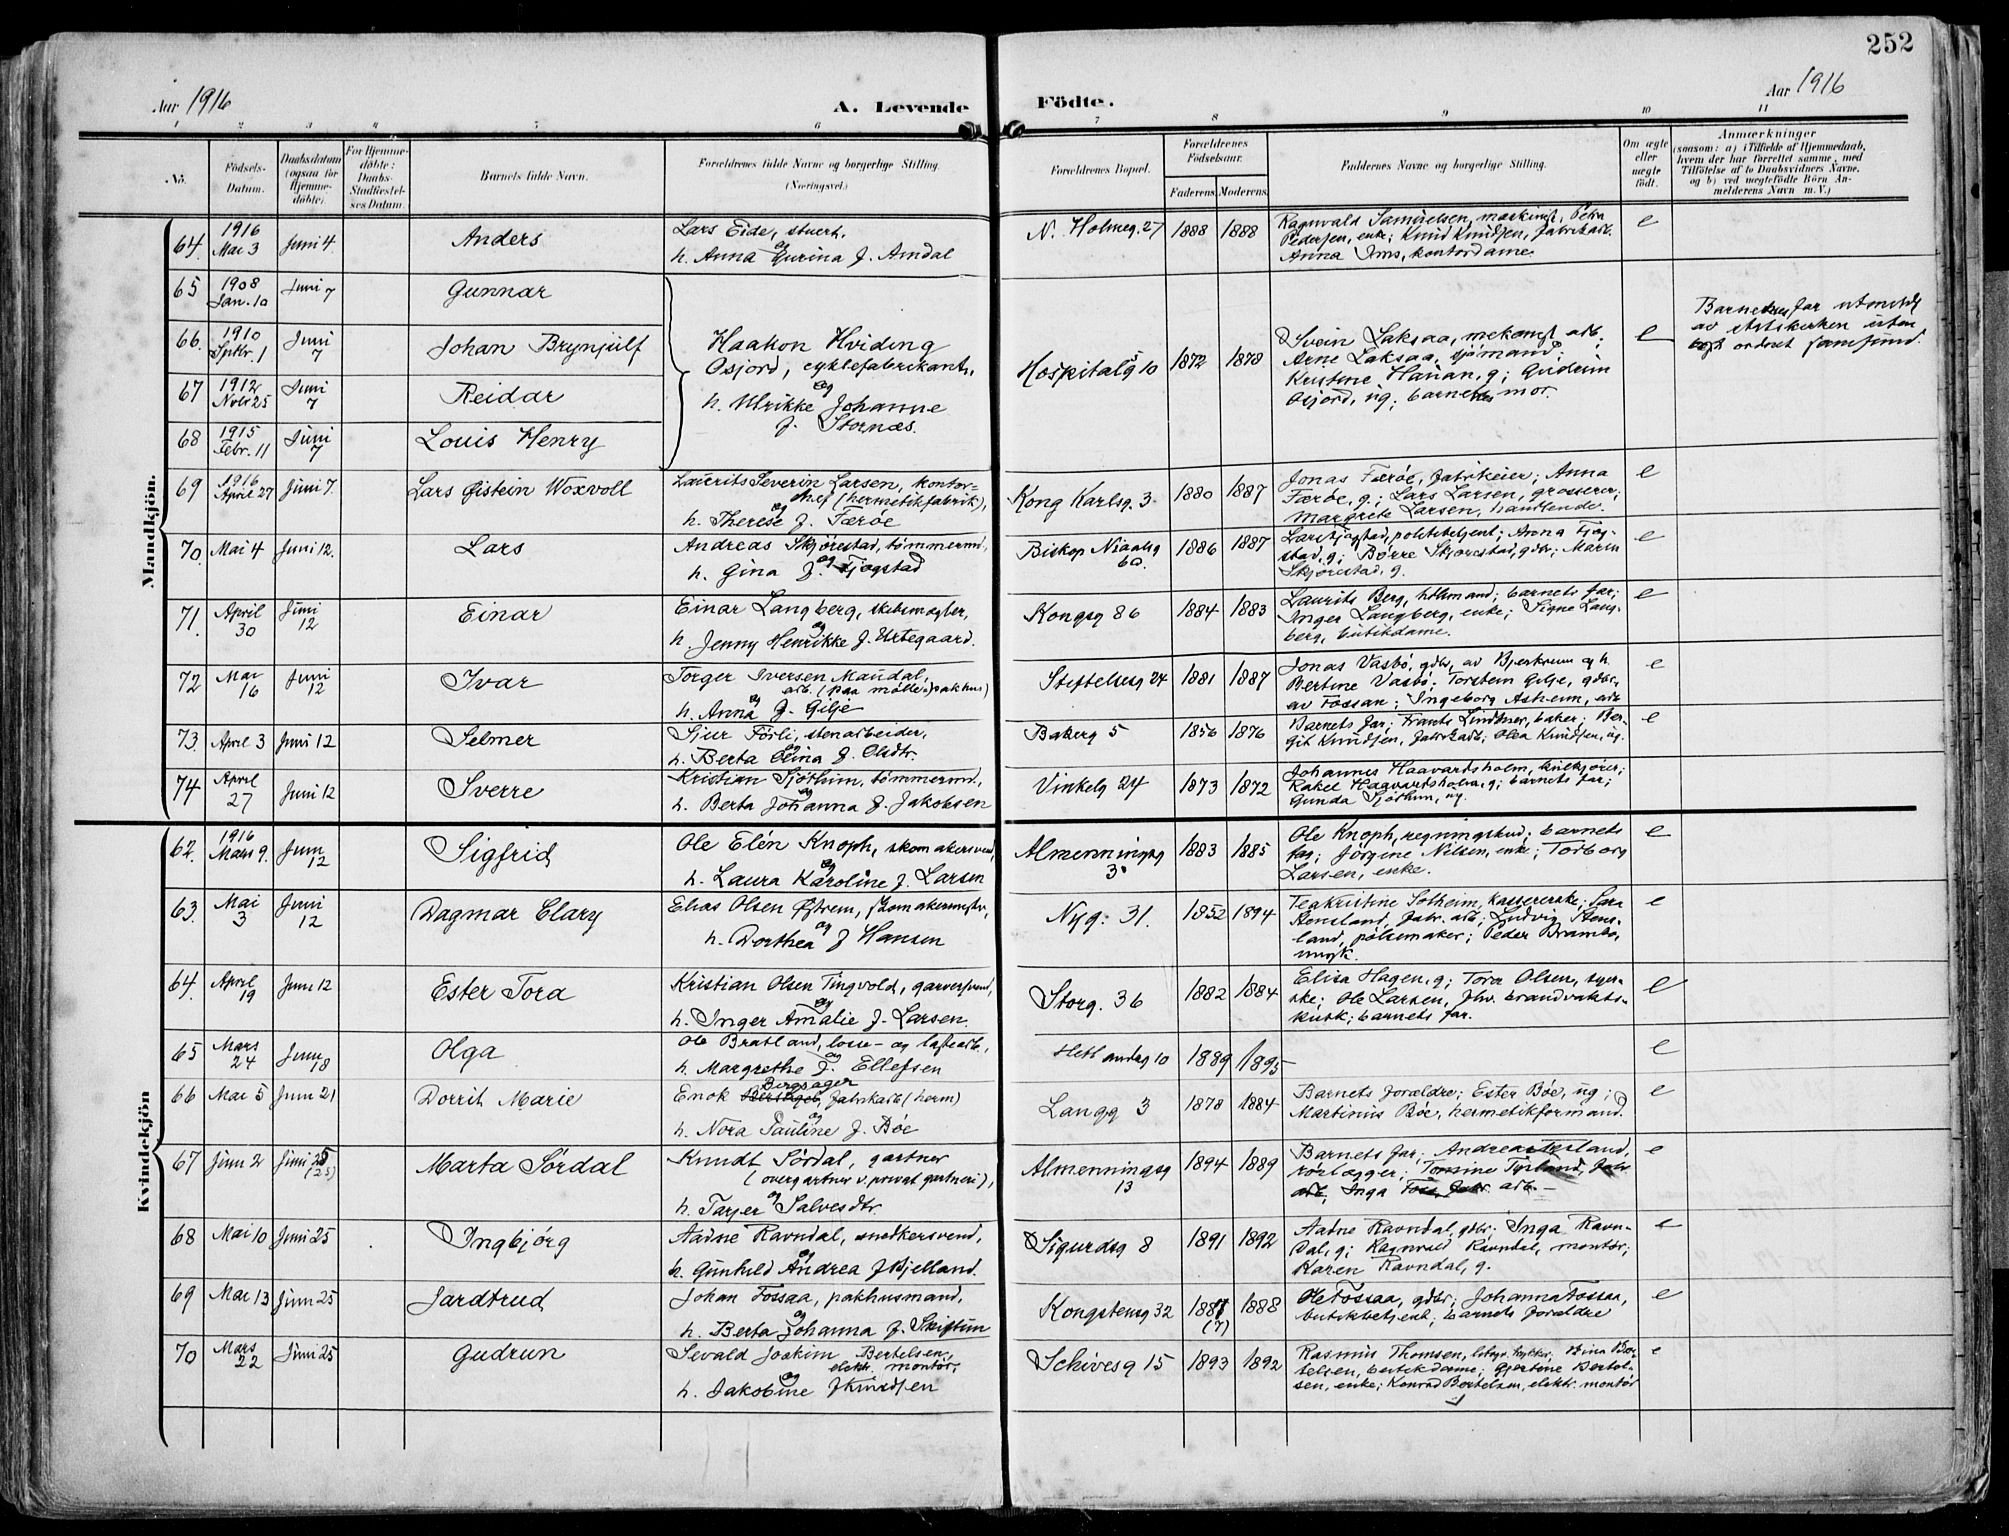 252
Aar 1916
A. Levende Födte.
Aar 1916
1 2 3 4 5 6 7 8 9 10 11
No.
Födsels-Datum.
Daabsdatum (ogsaa for Hjemme-döbte).
For Hjemme-döbte: Daabs-Stadfæstelses Datum.
Barnets fulde Navn.
Forældrenes fulde Navne og borgerlige Stilling. (Næringsvei.)
Forældrenes Bopæl.
Forældrenes Födselsaar.
Faderens. Moderens.
Faddernes Navne og borgerlige Stilling.
Om ægte eller uægte födt.
Anmærkninger
(saasom: a) i Tilfælde af Hjemmedaab, hvem der har forrettet samme, med Tilföielse af to Daabsvidners Navne, og b) ved uægtefödte Börn Anmelderens Navn m. V.)
Mandkjön.
64. 1916 Mai 3 Juni 4 Anders
Lars Eide, stuert,
og
h. Anna Gurina f. Amdal
N. Holmeg. 27 1888 1888
Ragnvald Samuelsen, maskinist, Petra
Pedersen, enke; Knud Knudsen, fabrikarb.
Anna Ims, kontordame.
e
65 1908 Jan. 10 Juni 7 Gunnar
66. 1910 Sptbr. 1 Juni 7 Johan Brynjulf
67 1912 Nvbr 25 Juni 7 Reidar
68 1915 Febr. 11 Juni 7 Louis Henry
Haakon Hviding
Osjord, cyklefabrikant,
og
h. Ulrikke Johanne
f. Stornæs.
Hospitalsg 10 1872 1878
Svein Laksaa, mekanist arb.;
Arne Laksaa, sjömand;
Kristine Hauan, g; Gudrun
Osjord, ug; barnets mor.
e
Barnets far utmeldt
av statskirken uten
ordnet samfund.
69 1916 April 27 Juni 7. Lars Øistein Woxvoll
Laurits Severin Larsen, kontor-
chef (hermetikfabrik),
og
h. Therese f. Færøe
Kong Karlsg. 3 1880 1887
Jonas Færøe, fabrikeier; Anna
Færøe, g; Lars Larsen, grosserer;
Margrete Larsen, handlende.
e
70. Mai 4 Juni 12. Lars
Andreas Skjørestad, tømmermd,
og
h. Gina f. Fjogstad
Biskop Niaalsg 6a. 1886 1887
Lars Fjogstad, politibetjent; Anna Fjog-
stad, g; Børre Skjørestad, gdbr; Maren
Skjørestad, g.
e
71. April 30 Juni 12 Einar
Einar Langberg, skibsmægler,
og
h. Jenny Henrikke f. Urtegaard.
Kongsg 86 1884 1883
Laurits Berg, barnets far;
Inger Langberg, enke; Signe Lang-
berg, butikdame.
e
72 Mai 16 Juni 12 Ivar
Torger Iversen Maudal,
arb. (paa mølle, pakhus)
og
h. Anna f. Gilje
Stiftelsesg 24 1881 1887
Jonas Vasbö, gdbr, av Bjerkreim og h.
Bertine Vasbö; Torstein Gilje, gdbr,
av Fossan; Ingeborg Asheim, arb
e
73. April 3 Juni 12 Selmer
Sjur Förli, stenarbeider,
og
h. Berta Olina f. Olsdtr.
Bakerg 5 1856 1876
Barnets far; Frants Lindtner, baker; Ber-
git Knudsen, fabrikarb; Olea Knudsen, ug.
e
74 April 27 Juni 12 Sverre
Kristian Sjöthun, tømmermd,
og
h. Berta Johanna f. Jakobsen
Vinkelg 24 1873 1872
Johannes Haavardsholm,
Rakel Haavardsholm, g; barnets far;
Gunda Sjöthun, ug.
Kvindekjön
62. 1916 Mars 9. Juni 12 Sigfrid
Ole Elén Knoph, skomakersvend,
og
h. Laura Karoline f. Larsen
Almenningsg 3. 1883 1885
Ole Knoph, regningsbud; barnets
far; Jörgine Nilsen, enke; Torborg
Larsen, enke.
e
63. Mai 3 Juni 12 Dagmar Clary
Elias Olsen Østrem, skomakermester,
og
h. Dorthea f Hansen
Nyg. 31. 1852 1894
Tea Kristine Solheim, kassererske; Sara
Stensland, fabr. arb; Ludvig Stens-
land, pölsemaker; Peder Brambo,
e
64. April 19 Juni 12 Ester Tora
Kristian Olsen Tingvold, garversvend,
og
h. Inger Amalie f. Larsen
Storg. 36 1882 1884
Elisa Hagen, g; Tora Olsen, syer-
ske; Ole Larsen, fhv. brandvakts-
kusk; barnets far.
e
65 Mars 24 Juni 18 Olga
Ole Bratland, losse- og lastearb,
og
h. Margrethe f. Ellefsen
Hetlandsg 10 1889 1895
e
66 Mai 5 Juni 21 Dorrit Marie
Bergsager
Enok fabrikarb (herm)
og
h. Nora Pauline f. Bøe
Langg 3 1878 1884
Barnets forældre; Ester Bøe, ug;
Martinius Bøe, hermetikformand.
e
67 Juni 2 Juni 25 (25) Marta Sördal
Knudt Sördal, gartner
(overgartner v. privat gartneri),
og
h. Tarjer Salvesdtr.
Almenningsg 13 1894 1889
Barnets far; Andreas
rörlægger; Tomine fabr.
arb, Inga arb.
e
68 Mai 10 Juni 25 Ingbjørg
Aadne Ravndal, snedkersvend,
og
h. Gunhild Andrea f Kjelland.
Sigurdsg 8 1891 1892
Aadne Ravndal, gdbr; Inga Ravn-
dal, g; Ragnvald Ravndal, montör;
Karen Ravndal, g.
e
69 Mai 13 Juni 25 Jardtrud
Johan Fossaa, pakhusmand,
og
h. Berta Johanna f. Skiftun
Kongstensg 32 1887 (7) 1888
Ole Fossaa, gdbr; Johanna Fossaa,
butikbetjent; barnets forældre
e
70 Mars 22 Juni 25 Gudrun
Sevald Joakim Bertelsen,
elektr. montör,
og
h. Jakobine f Knudsen
Schivesg 15 1893 1892
Rasmus Thomsen, litogr. trykker; Dina Ber-
telsen, butikdame; Gjertine Bertel-
sen, enke; Konrad Bertelsen, elektr. montör
e